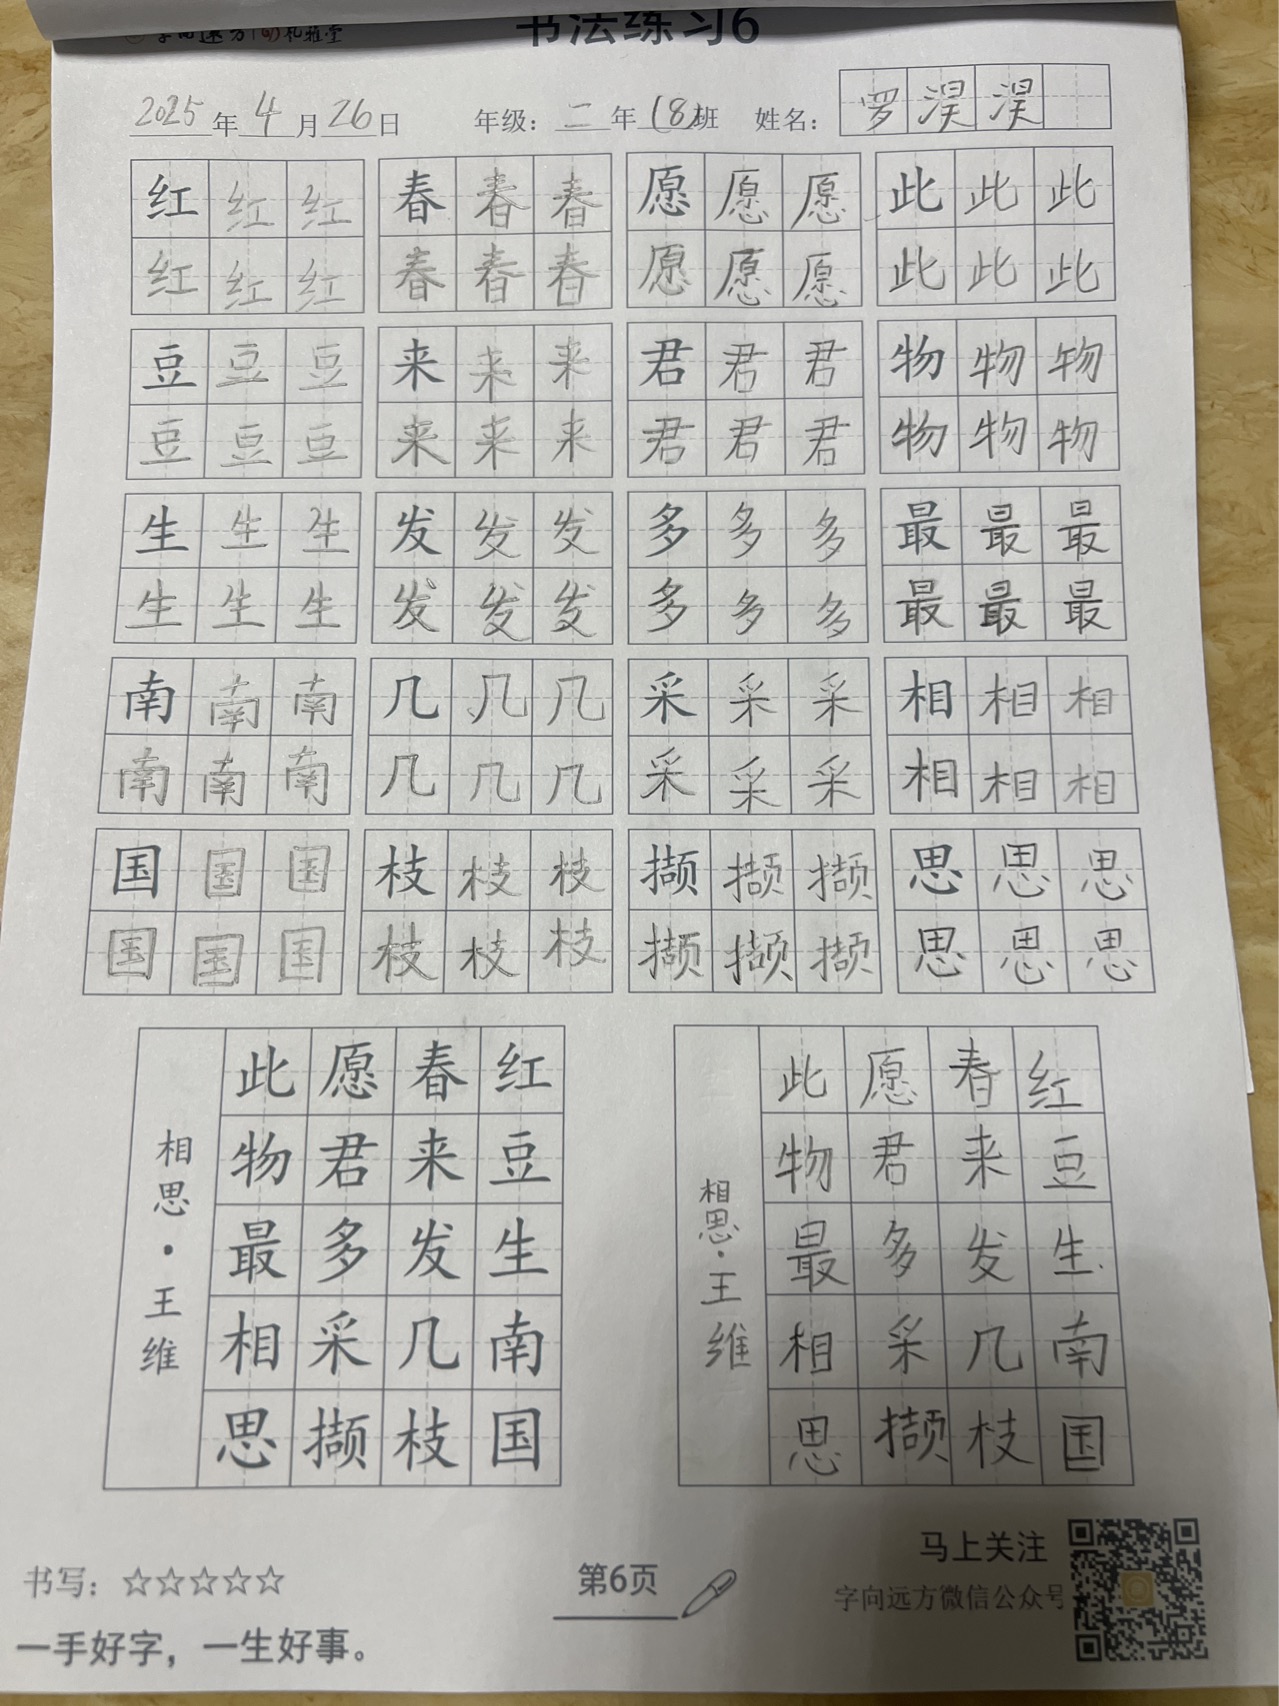 书法练习6
2025年4月26日 年级：二年(8)班 姓名：罗淏淏
红红红 春春春 愿愿愿 此此此
红红红 春春春 愿愿愿 此此此
豆豆豆 来来来 君君君 物物物
豆豆豆 来来来 君君君 物物物
生生生 发发发 多多多 最最最
生生生 发发发 多多多 最最最
南南南 几几几 采采采 相相相
南南南 几几几 采采采 相相相
国国国 枝枝枝 撷撷撷 思思思
国国国 枝枝枝 撷撷撷 思思思
红豆生南国
春来发几枝
愿君多采撷
此物最相思
相思·王维
红豆生南国
春来发几枝
愿君多采撷
此物最相思
相思·王维
书写：☆☆☆☆☆
一手好字，一生好事。
第6页
马上关注
字向远方微信公众号